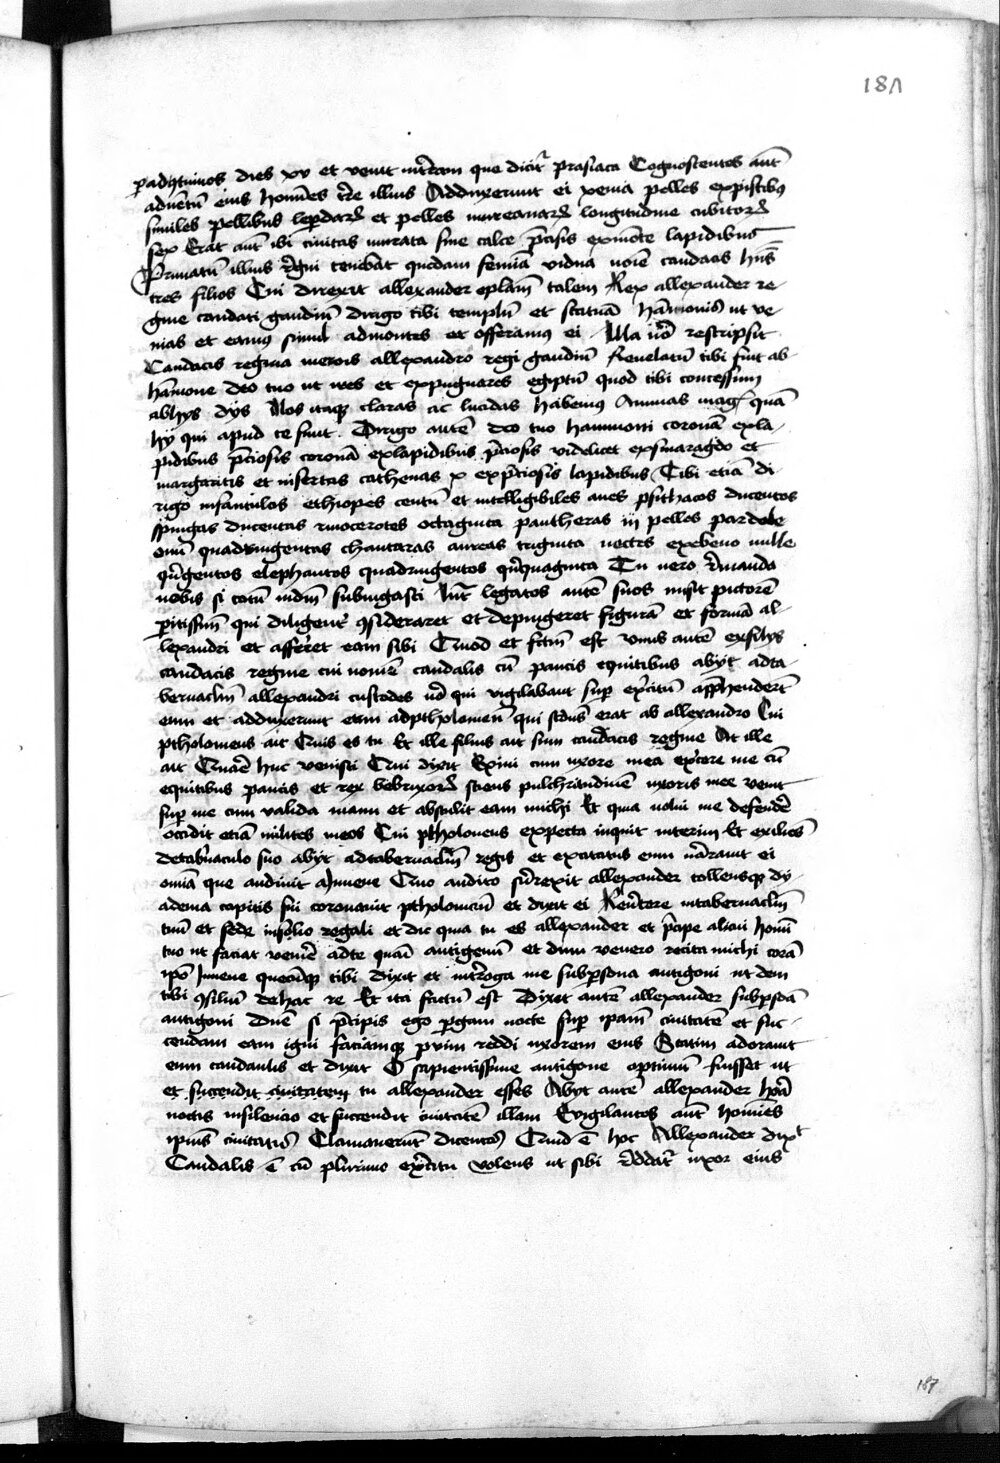 187
p adq̄tuuios dies xv et venit int̄ram que dicit̄ prasiaca Cognoscentes aut̄
aduētū eius homīes t̄re illius Adduxerunt ei xenia pelles expistibus
similes pellibus leopardar̄ et pelles mureanar̄ longitudine cubitor̄
sex Erat aut̄ ibi ciuitas murata sine calce p̄cisis exmōte lapidibus
Primatū illius r̄gni tenebat quedam femīa vidua noīe candacis hn̄s
tres filios Cui direxit allexander eplam̄ talem Rex allexander re-
gine candaci gaudiū dirigo tibi templū et statuā hāmonis ut ve-
nias et eamus simul admontes et offeramus ei Illa v̄o rescripsit
Candacis regina merois allexandro regi gaudiū Reuelatū tibi fuit ab
hāmone deo tuo ut ires et expugnares egiptū quod tibi concessum
abhys dys Nos itaque claras ac lucidas habemus Animas maḡ quā
hy qui apud te sunt . Dirigo autē deo tuo hammoni coronā exla-
pidibus p̄ciosis coronā exlapidibus p̄ciosis videlicet exsmaragdo et
margaritis et insertas cathenas x exp̄ciosis lapidibus Tibi etiā di
rigo infantulos ethiopes centū et intelligibiles aues psithacos ducentos
spingas ducentas rinocerotes octaginta pantheras iij pelles pardole
onū quadringentas chantaras aureas triginta vectes exebeno mille
qn̄gentos elephantos quadringentos qn̄quaginta Tu vero r̄manda
nobis si totū mdm̄ subiugasti Int̄ legatos autē suos misit pictorē
p̄itissim̄ qui diligent̄ 9sideraret et depingeret figurā et formā al-
lexandri et affer̄et eam sibi Quod et fctm̄ est Vnus autē exfilys
candacis regine cui nomē candalis cū paucis equitibus abijt adta-
bernaclm̄ allexandri custodes v̄o qui vigilabant sup̄ ex̄citū app̄henderūt
eum et adduxerunt eum adptholomeū qui scdus̄ erat ab allexandro Cui
ptholomeus ait Quis es tu Et ille filius ait sum candacis regine At ille
ait Quare huc venisti Cui dixit Exiui cum uxore mea ex̄cere me cū
equitibus paucis et rex bebrixor̄ sciens pulchritudinē uxoris mee venit
sup̄ me cum valida manu et abstulit eam michi Et quia volui me defender̄
occidit etiā milites meos Cui ptholomeus expecta inquit interim Et exiliēs
detab̄naculo suo abijt adtabernaclm̄ regis et excitatus eum nārauit ei
omīa que audiuit aJuuene Quo audito sur̄exit allexander tollensque dy-
adema capitis sui coronauit ptholomeū et dixit ei Reūtere intabernaclm̄
tuū et sede insolio regali et dic quia tu es allexander et p̄cipe alicui homī
tuo ut faciat venir̄e adte quasi antigenū et dum venero recita michi corā
ip̄o Juuene quecūque tibi dixit et int̄roga me subp̄sona antigoni ut dem
tibi 9siliū dehac re Et ita factū est Dixit autē allexander subp̄sōa
antigoni Dn̄e si p̄cipis ego p̄gam nocte sup̄ ipam̄ ciuitatē et suc-
cendam eam igni faciamque p̄uim reddi uxorem eius Statim adorauit
eum candaulis et dixit O sapientissime antigone optimū fuisset ut
et succendit ciuitatem tu allexander esses Abijt autē allexander hora
noctis insilencio et succendit ciuitatē illam Euigilantes aut̄ homīes
ipius ciuitatis Clamauerūt dicentes Quid ē hoc Allexander dixt
Candalis ē cū plurimo ex̄citu volens ut sibi r̄ddat̄ uxor eius
187